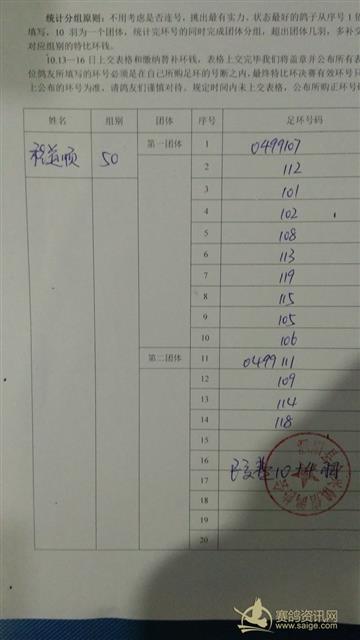 统计分组原则：不用考虑是否连号，挑出最有实力，状态最好的鸽子从序号1
填写，10 羽为一个团体，统计完环号的同时完成团体分组，超出团体几羽，多补交
对应组别的特比环钱。
10.13—16 日上交表格和缴纳替补环钱，表格上交完毕我们将盖章并公布所有表
位鸽友所填写的环号必须是在自己所购足环的号断之内，最终特比环决赛有效环号
上公布的环号为准，请鸽友们谨慎对待。规定时间内未上交表格，公布所购正环号
姓名 组别 团体 序号 足环号码
50 第一团体 1 0499107
2 112
3 101
4 102
5 108
6 113
7 119
8 115
9 105
10 106
第二团体 11 0499111
12 109
13 114
14 118
15
16
17
18
19
20
赛鸽资讯网
www.saige.com